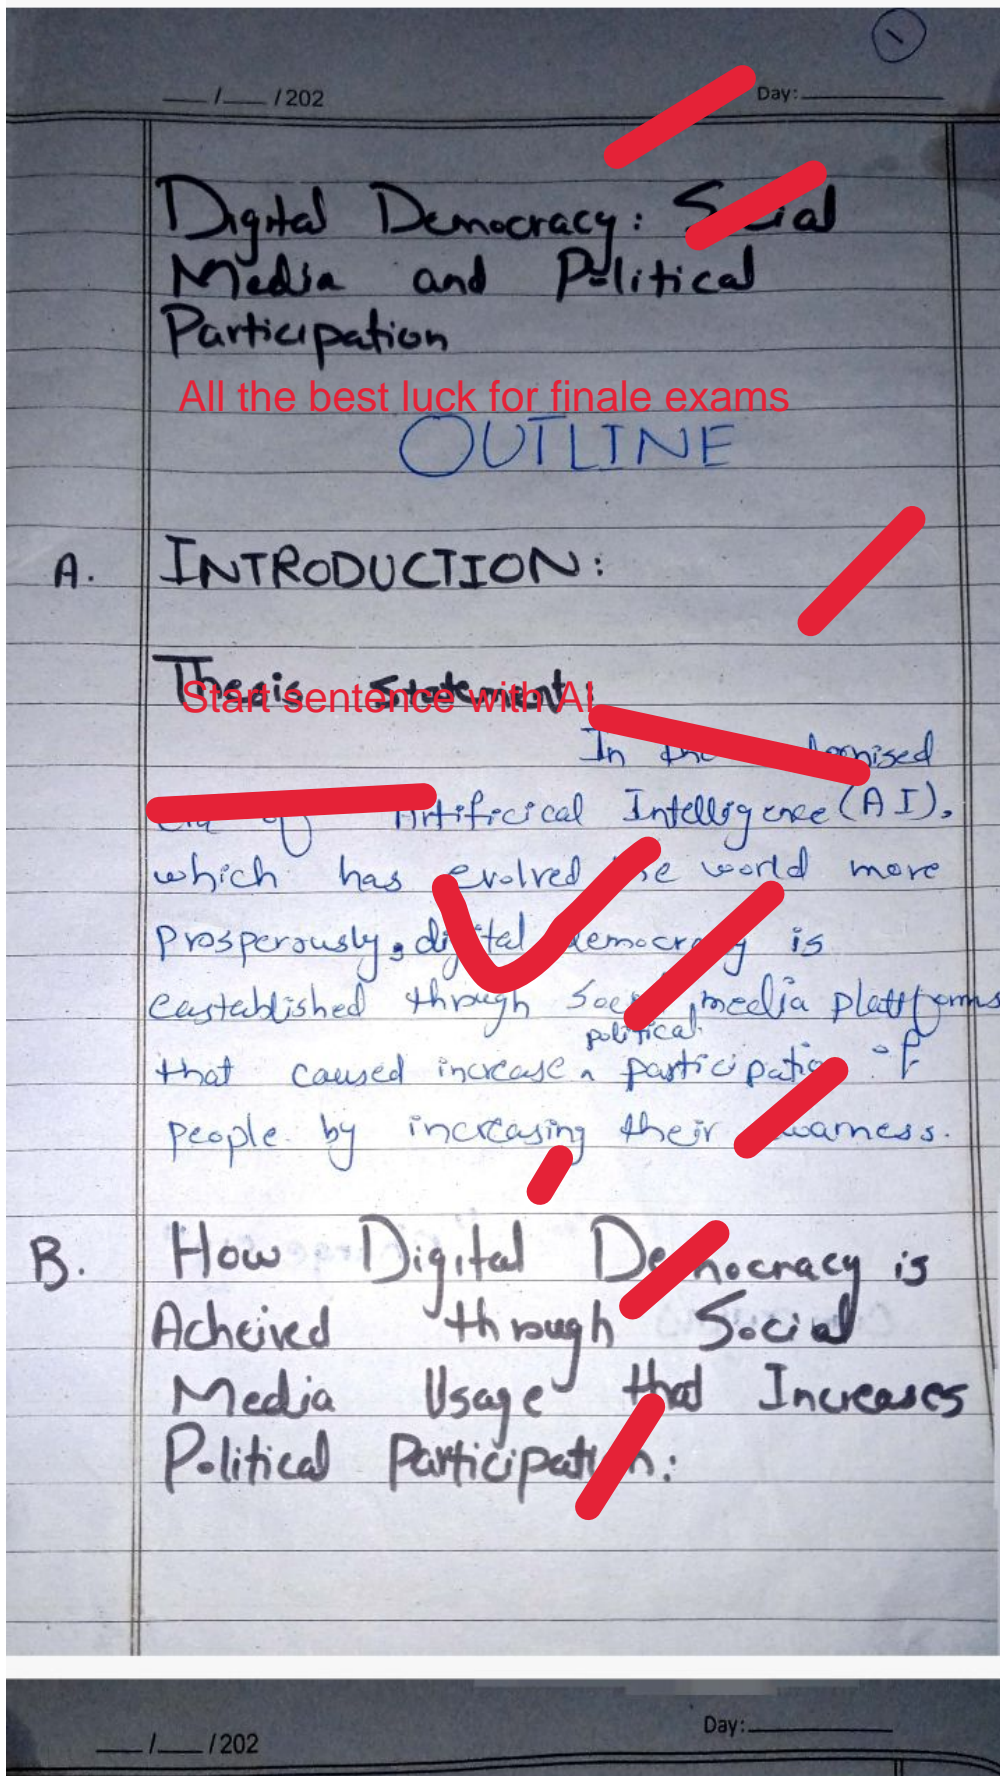 1
__/__/202 Day:
Digital Democracy: Social
Media and Political
Participation
All the best luck for finale exams
OUTLINE
A. INTRODUCTION:
Thesis Statement:
Start sentence with AI
In the
Artificical Intelligence (AI),
which has evolved the world more
prosperously, digital democracy is
eastablished through Social media plattforms
political
that caused increase ^ participation of
people by increasing their awarness.
B. How Digital Democracy is
Acheived through Social
Media Usage that Increases
Political Participation:
__/__/202 Day: